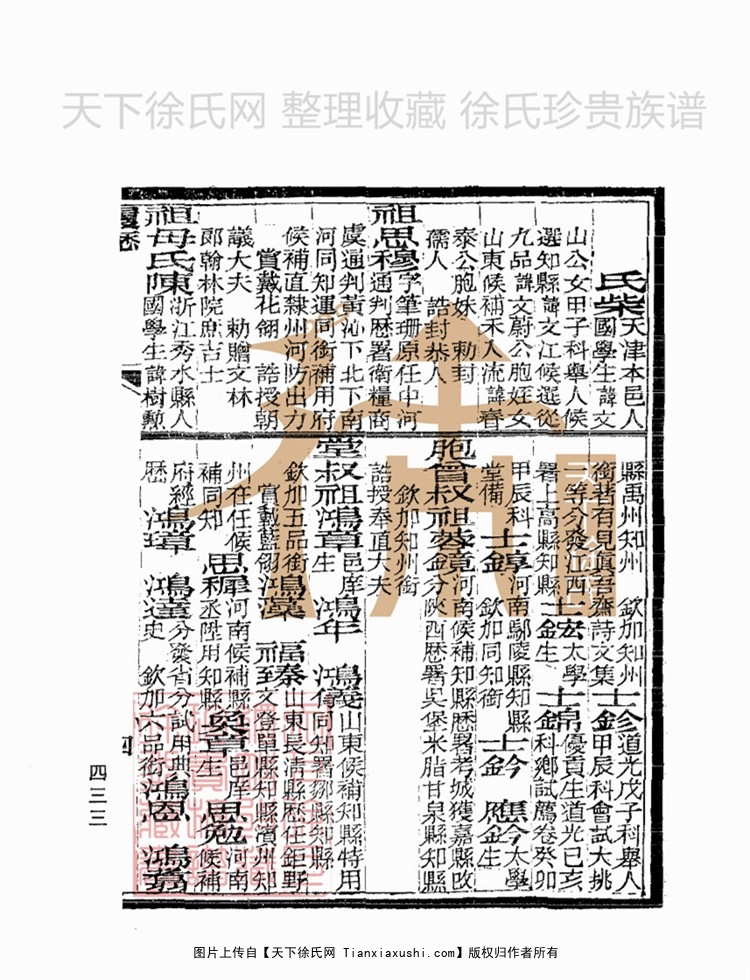 天下徐氏网 整理收藏 徐氏珍贵族谱
氏柴
天津本邑人
國學生諱文
山公女甲子科舉人候
選知縣諱文江候選從
九品諱文蔚公胞姪女
山東候補未入流諱春
泰公胞妹 勅封
儒人 誥封恭人
祖思穆
字筆珊原任中河
通判歷署衛糧商
虞通判黃沁下北下南
河同知運同銜補用府
候補直隸州河防出力
賞戴花翎 誥授朝
議大夫 勅贈文林
郎翰林院庶吉士
祖母氏陳
浙江秀水縣人
國學生諱樹勳
履歷
縣禹州知州 欽加知州
銜著有見真吾齋詩文集
士鉁
道光戊子科舉人
甲辰科會試大挑
一等分發江西
署上高縣知縣
士宏
太學
生
士錦
優貢生道光己亥
科鄉試薦卷癸卯
甲辰科
堂備
士錞
河南鄢陵縣知縣
欽加同知銜
士鈐
太學
生
胞曾叔祖蓉鏡
河南候補知縣歷署考城獲嘉縣改
分陝西歷署吳堡米脂甘泉縣知縣
欽加知州銜
誥授奉直大夫
堂叔祖鴻章
邑庠
生
鴻年
鴻
山東候補知縣特用
同知署鄒縣知縣
欽加五品銜
賞戴藍翎
鴻藻 福臻
山東長清縣歷任鉅野
文登單縣知縣濱州知
州在任候
補同知
思穉
河南候補縣
丞陞用知縣
奐章
邑庠
生
思勉
河南
候補
府經
歷
鴻璋 鴻逵
分發省分試用典
史 欽加六品銜
鴻恩 鴻翥
四
四三三
图片上传自【天下徐氏网 Tianxiaxushi.com】版权归作者所有